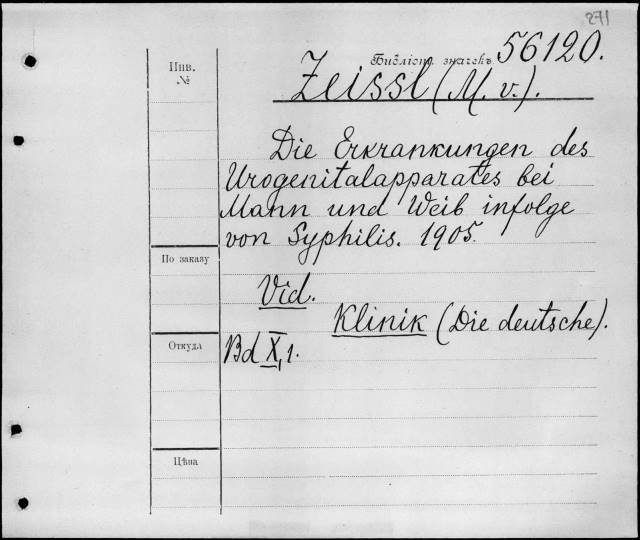 271
Библіот. значекъ 56120.
Инв.
№
Zeissl (M. v.).
Die Erkrankungen des
Urogenitalapparates bei
Mann und Weib infolge
von Syphilis. 1905.
По заказу
Vid.
Klinik (Die deutsche).
Откуда
Bd X, 1.
Цѣна